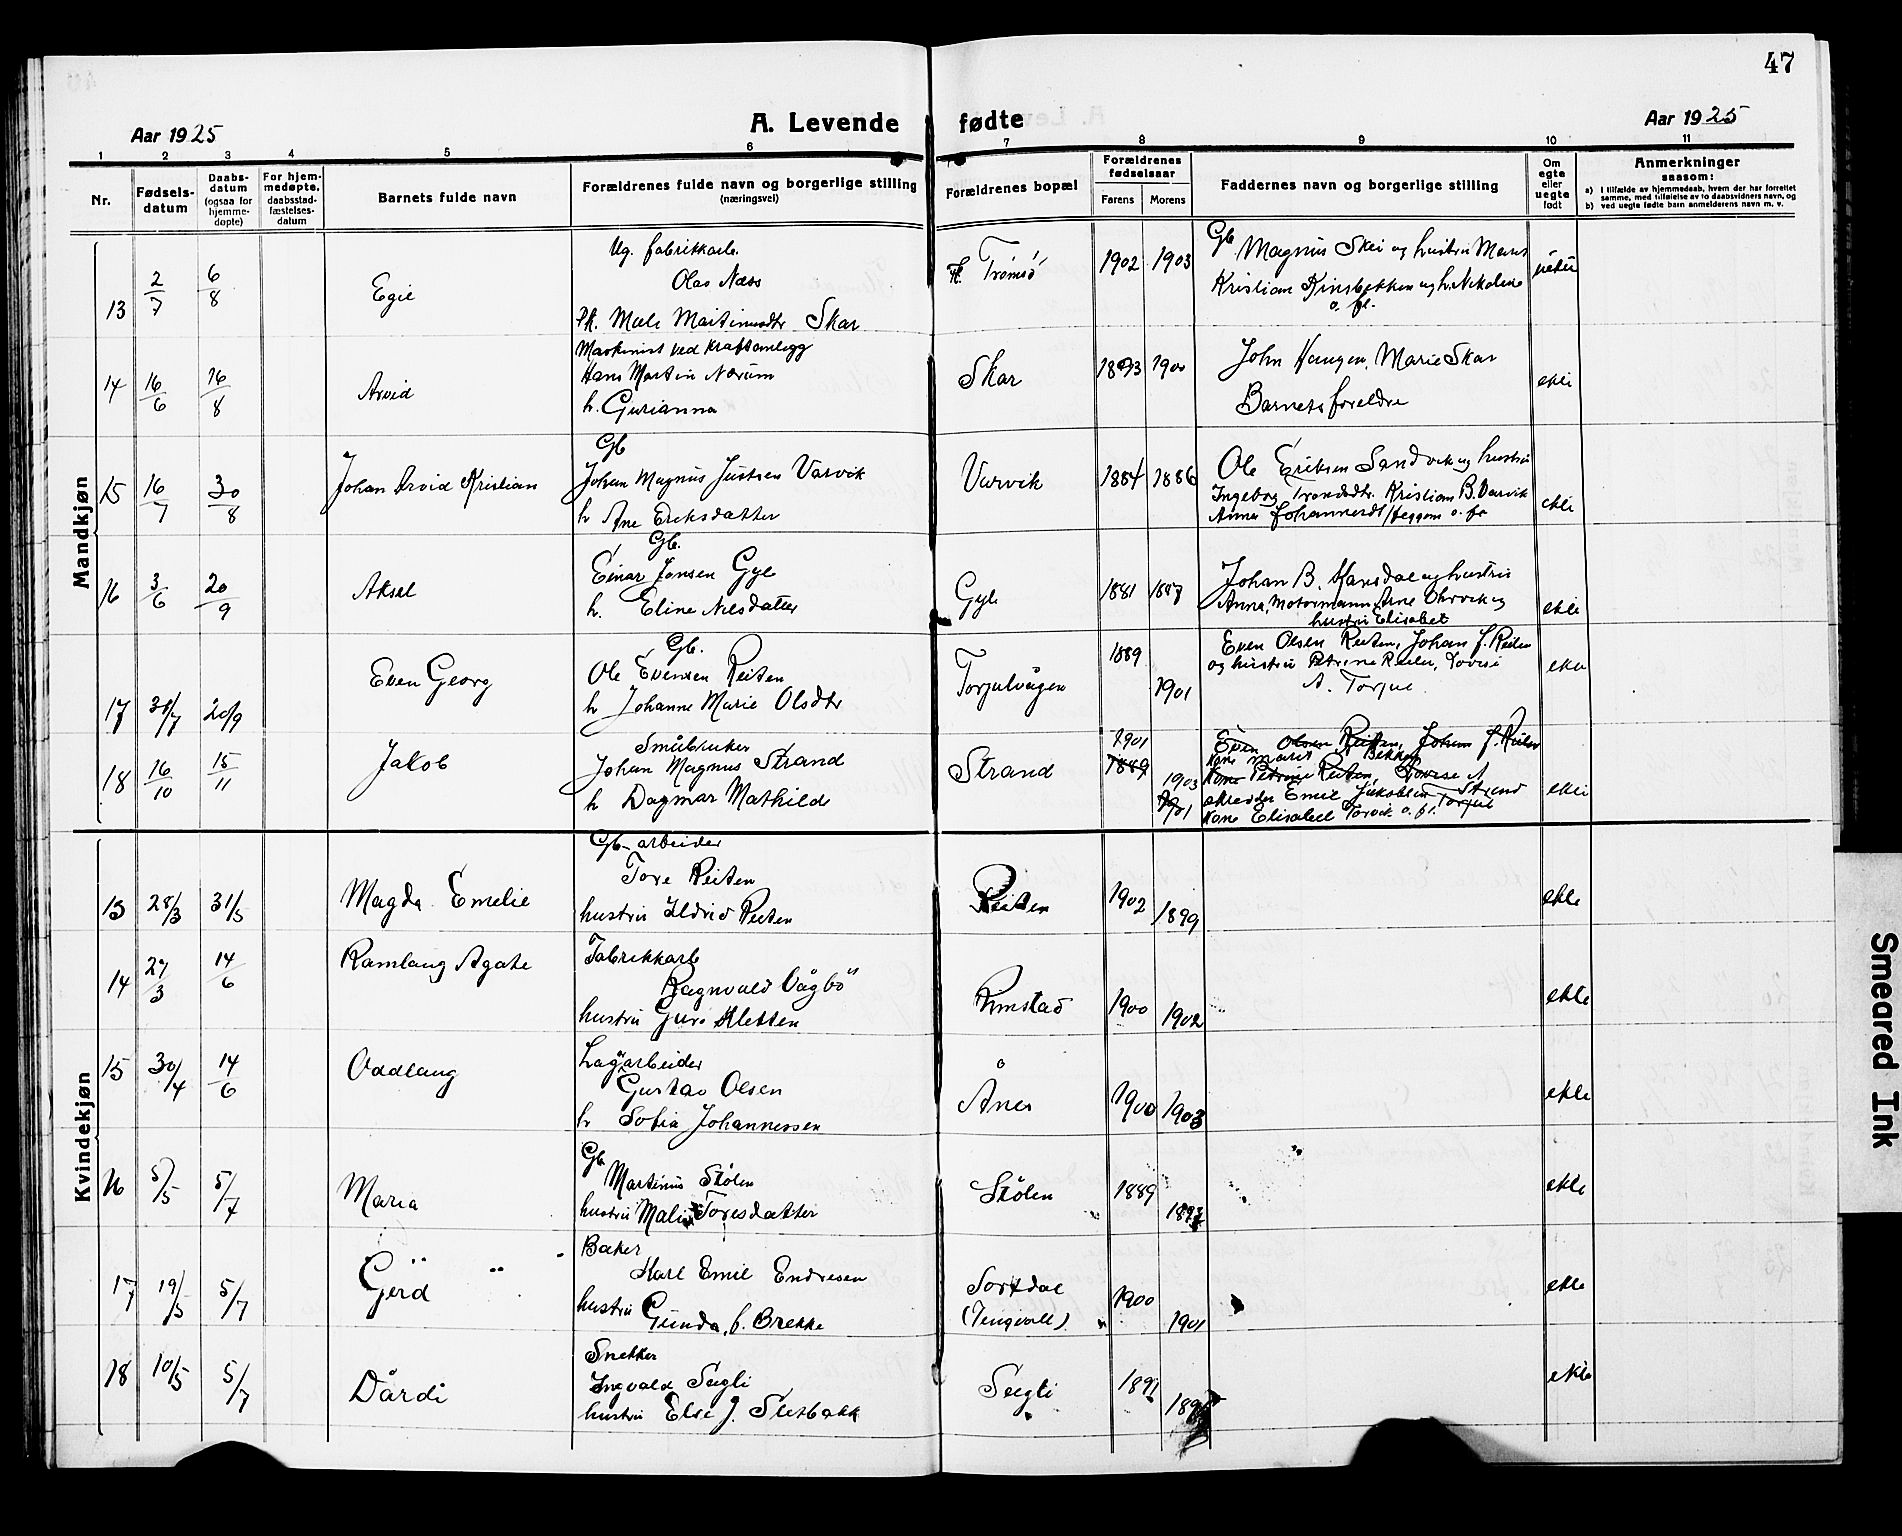 47
Aar 1925
A. Levende fødte
Aar 1925
1 2 3 4 5 6 7 8 9 10 11
Nr.
Fødsels-
datum
Daabs-
datum
(ogsaa for
hjemme-
døpte)
For hjem-
medøpte,
daabsstad-
fæstelses-
datum
Barnets fulde navn
Forældrenes fulde navn og borgerlige stilling
(næringsvei)
Forældrenes bopæl
Forældrenes
fødselsaar
Farens Morens
Faddernes navn og borgerlige stilling
Om
egte
eller
uegte
født
Anmerkninger
saasom:
a) I tilfælde av hjemmedaab, hvem der har forrettet
samme, med tilføielse av to daabsvidners navn, og
b) ved uegte fødte barn anmelderens navn m. v.
Mandkjøn
13 2/7 6/8 Egil
Ug. fabrikkarb.
Olav Næss
Pk. Mali Martinusdtr Skar
Tromsö 1902 1903
Gb. Magnus Skei og hustru
Kristian og h. Nikoline
o. fl.
14 16/6 16/8 Arvid
Maskinist ved kraftanlegg
Hans Martin Nerum
h. Gurianna
Skar 1893 1900
John Haugen, Marie Skar
Barnets foreldre
ekte
15 16/7 30/8 Johan Arvid Kristian
Gb
Johan Magnus Justsen Varvik
h Ane Eriksdatter
Varvik 1884 1886
Ole Eriksen Sandvik og hustru
Ingeborg Kristian B. Varvik
Anna Johannesdt Heggem o. fl
ekte
16 3/6 20/9 Aksel
Gb.
Einar Jonsen Gyl
h. Eline Nilsdatter
Gyl 1881 1887
Johan B. og hustru
Anna, Motormann Arne og
hustru Elisabet
ekte
17 31/7 20/9 Even Georg
Gb.
Ole Evensen Reiten
h Johanne Marie Olsdtr
Torjulvågen 1889 1901
Even Olsen Reiten, Johan J. Reiten
og hustru Petrine Reiten, Lovise
A. Torjul
ekte
18 16/10 15/11 Jakob
Småbruker
Johan Magnus Strand
h Dagmar Mathilde
Strand 1901 1889 1903 1901
Even Olsen Reiten, Johan J. Reiten
Kone Marit Bekken
Kone Petrine Reiten, Lovise A
Emil Jakobsen Strand
Torjul
Kone Elisabet Torvik o. fl.
ekte
Kvindekjøn
13 28/3 31/5 Magda Emelie
Gb-arbeider
Tore Reiten
hustru Ildrid Reiten
Reiten 1902 1899
ekte
14 27/3 14/6 Ramlaug Agate
Fabrikkarb
Ragnvald Vågbö
hustru Guro Kletten
Rimstad 1900 1902
ekte
15 30/4 14/6 Oddlaug
arbeider
Gustav Olsen
h Sofia Johannessen
Ånes 1900 1903
ekte
16 5/5 5/7 Maria
Gb.
Martinus Stölen
hustru Mali Toresdatter
Stölen 1889
ekte
17 19/5 5/7 Gerd
Baker
Karl Emil Endresen
hustru Gunda, f. Brekke
(Tingvoll) 1900 1901
ekte
18 10/5 5/7 Dårdi
Snekker
Ingvald Segli
hustru Else J. Sletbakk
Segli 1891
ekte
Smeared Ink